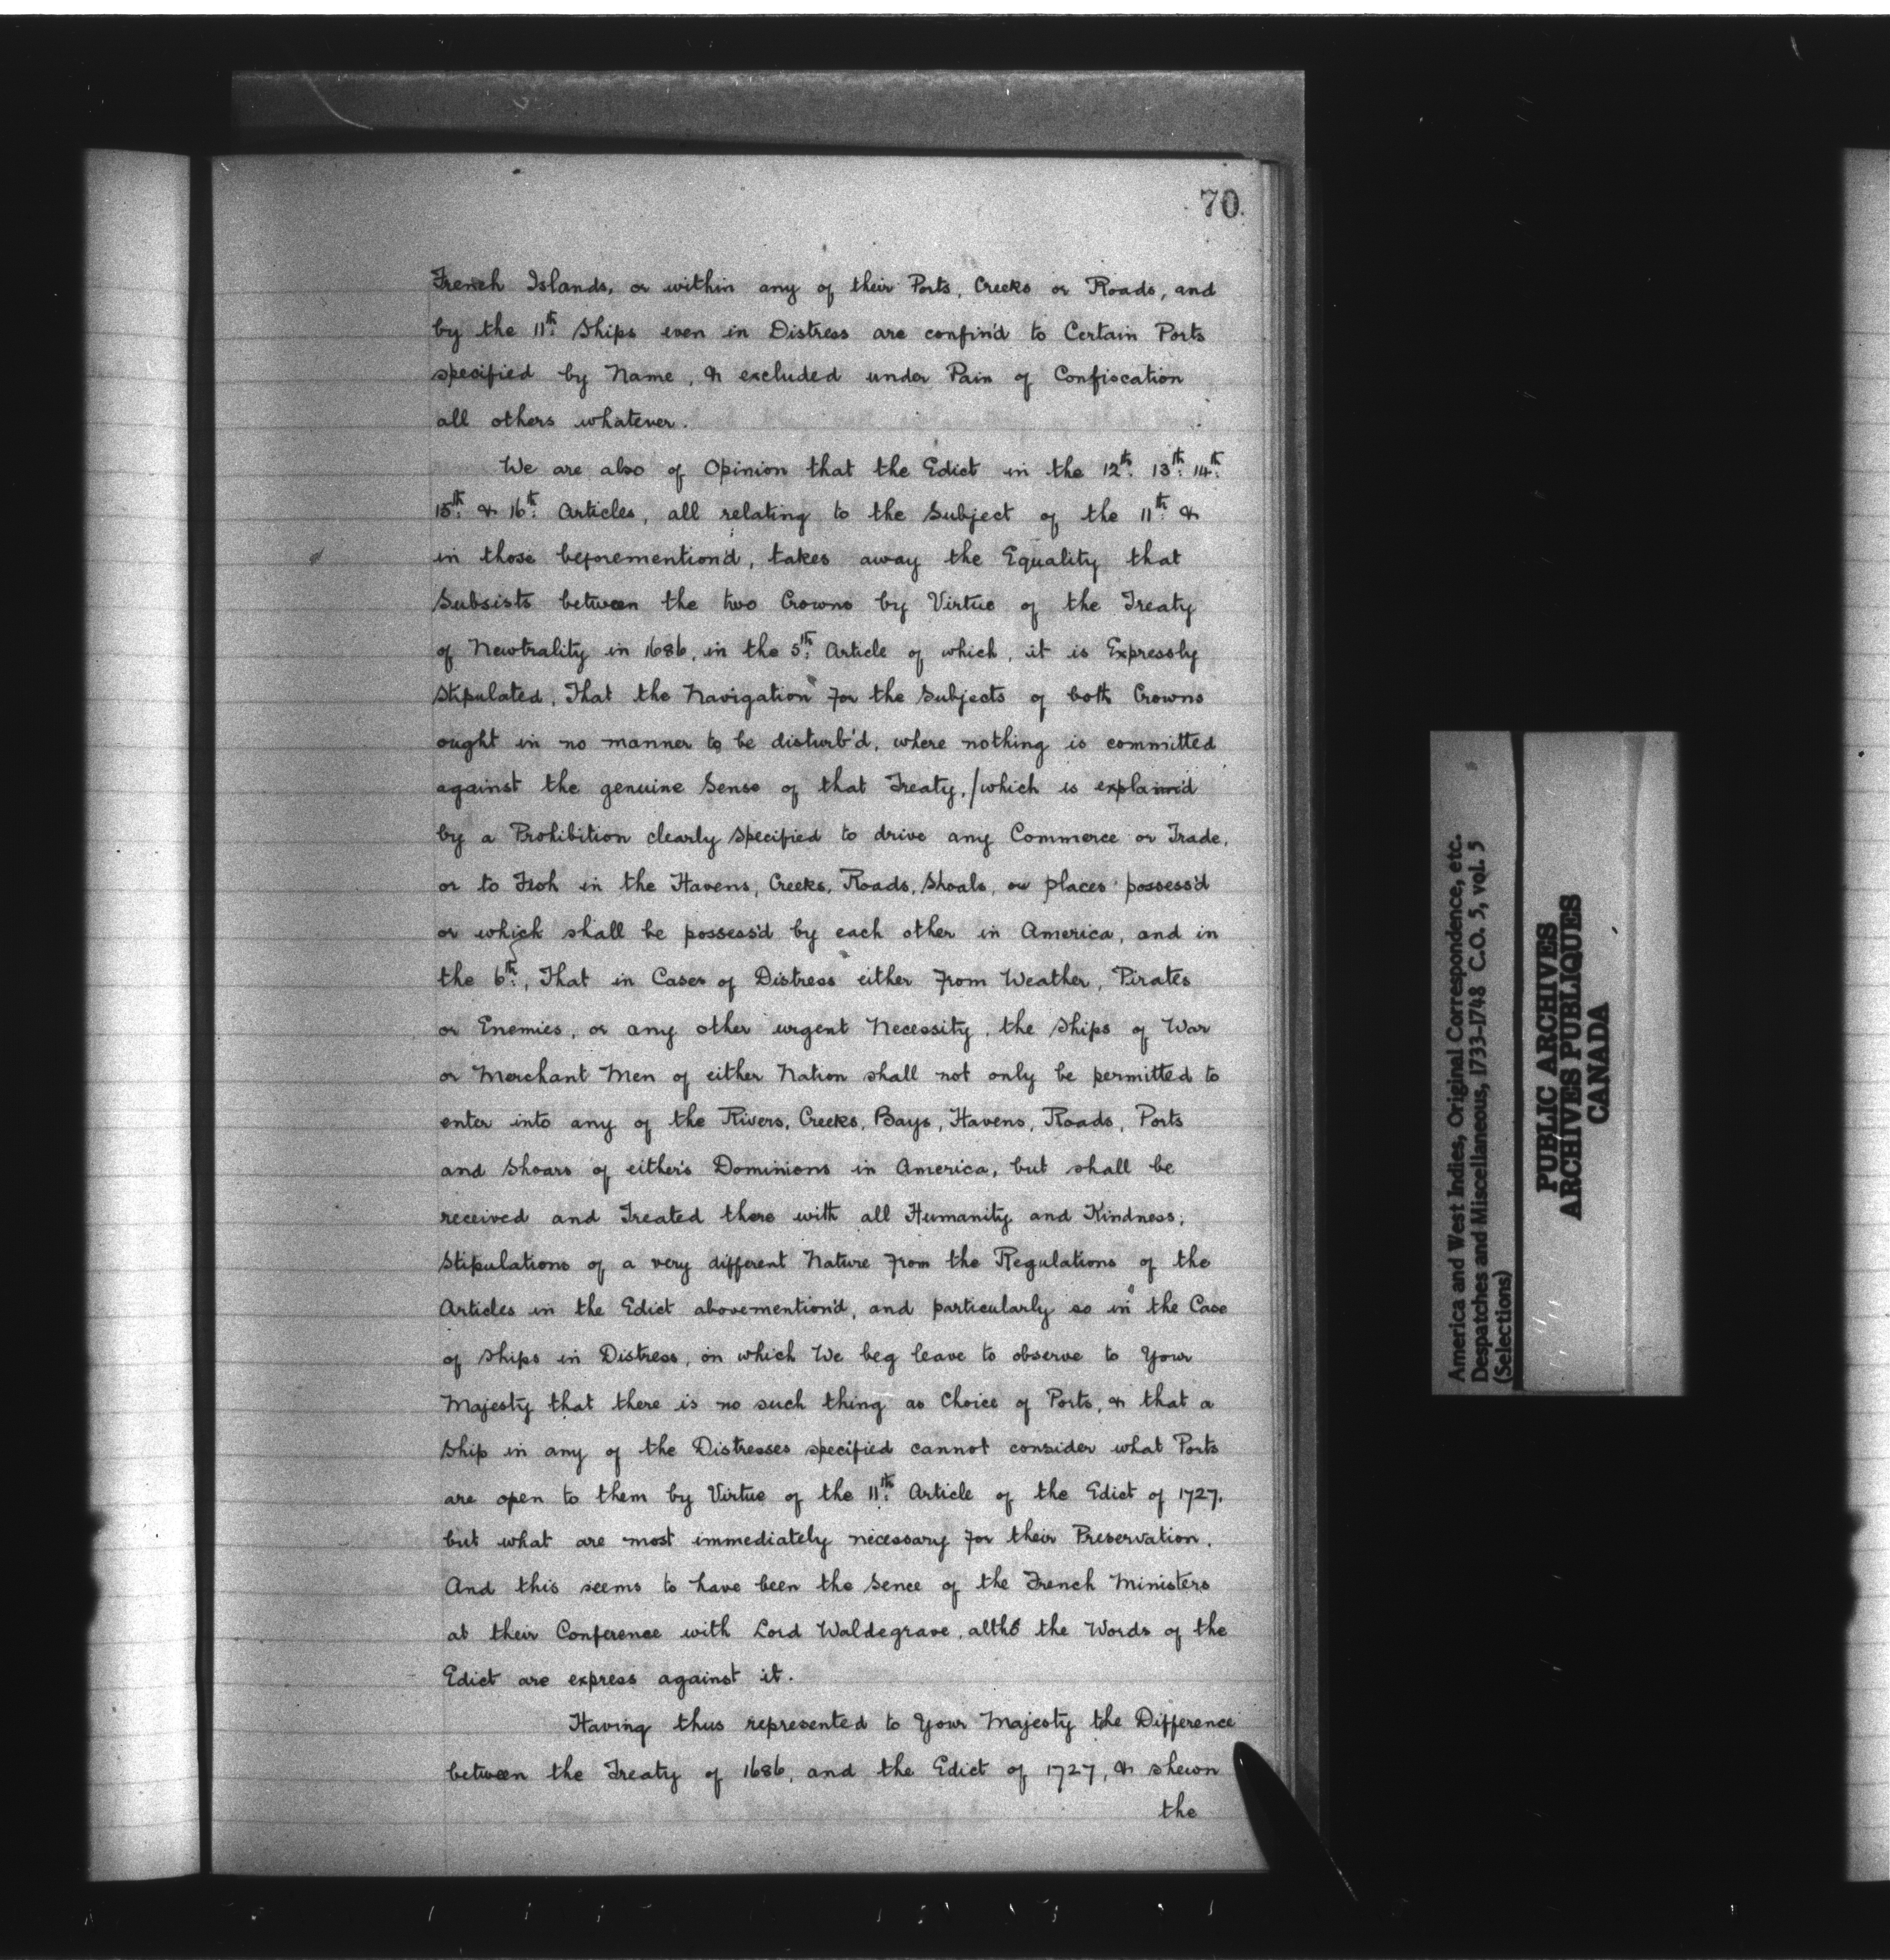 70.
French Islands, or within any of their Ports, Creeks or Roads, and
by the 11th. Ships even in Distress are confin'd to Certain Ports
specified by Name, & excluded under Pain of Confiscation
all others whatever.
We are also of Opinion that the Edict in the 12th. 13th. 14th.
15th. & 16th. Articles, all relating to the Subject of the 11th. &
in those beforemention'd, takes away the Equality that
Subsists between the two Crowns by Virtue of the Treaty
of Newtrality in 1686, in the 5th. Article of which, it is Expressly
Stipulated, That the Navigation for the Subjects of both Crowns
ought in no manner to be disturb'd, where nothing is committed
against the genuine Sense of that Treaty, /which is explained
by a Prohibition clearly specified to drive any Commerce or Trade,
or to Fish in the Havens, Creeks, Roads, Shoals, or places possess'd
or which shall be possess'd by each other in America, and in
the 6th., That in Cases of Distress either from Weather, Pirates
or Enemies, or any other urgent Necessity, the Ships of War
or Merchant Men of either Nation shall not only be permitted to
enter into any of the Rivers, Creeks, Bays, Havens, Roads, Ports
and Shoars of either's Dominions in America, but shall be
received and Treated there with all Humanity and Kindness;
Stipulations of a very different Nature from the Regulations of the
Articles in the Edict abovemention'd, and particularly so in the Case
of Ships in Distress, on which We beg leave to observe to Your
Majesty that there is no such thing as Choice of Ports, & that a
Ship in any of the Distresses specified cannot consider what Ports
are open to them by Virtue of the 11th. Article of the Edict of 1727.
but what are most immediately necessary for their Preservation.
And this seems to have been the Sence of the French Ministers
at their Conference with Lord Waldegrave, altho' the Words of the
Edict are express against it.
Having thus represented to Your Majesty the Difference
between the Treaty of 1686, and the Edict of 1727, & shewn
the
America and West Indies, Original Correspondence, etc.
Despatches and Miscellaneous, 1733-1748 C.O. 5, vol. 5
(Selections)
PUBLIC ARCHIVES
ARCHIVES PUBLIQUES
CANADA